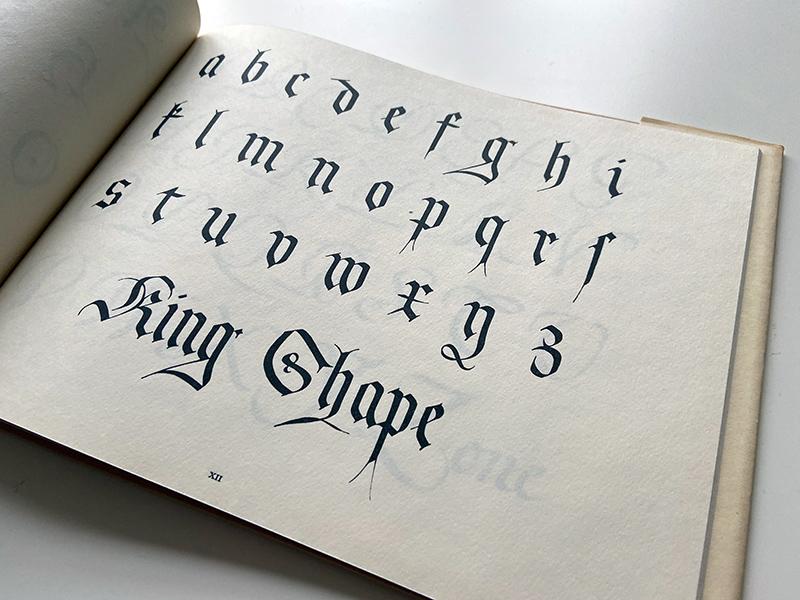 a b c d e f g h i
k l m n o p q r ſ
s t u v w x y z
King Shape
XII